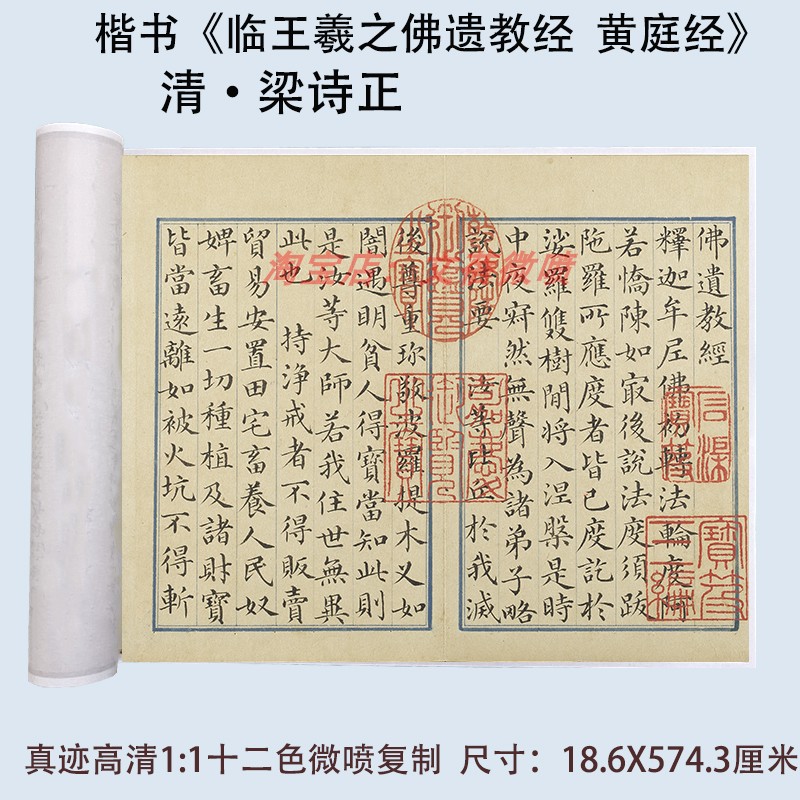 楷书《临王羲之佛遗教经 黄庭经》
清·梁诗正
佛遺教經
釋迦牟尼佛初轉法輪度阿
若憍陳如㝡後說法度須跋
陁羅所應度者皆已度訖於
娑羅雙樹間將入涅槃是時
中夜寂然無聲為諸弟子略
說法要 汝等比丘於我滅
後尊重珍敬波羅提木叉如
闇遇明貧人得寶當知此則
是汝等大師若我住世無異
此也 持淨戒者不得販賣
貿易安置田宅畜養人民奴
婢畜生一切種植及諸財寶
皆當遠離如被火坑不得斬
淘宝店 微喷
寶笈
三編
真迹高清1:1十二色微喷复制 尺寸：18.6X574.3厘米